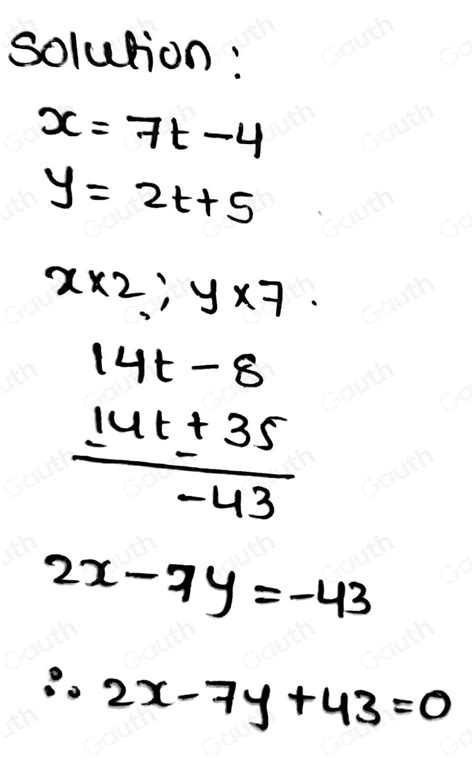 Solution:
x = 7t - 4
y = 2t + 5
x×2; y×7.
14t - 8
14t + 35
- -
-43
2x - 7y = -43
∴ 2x - 7y + 43 = 0
Gauth